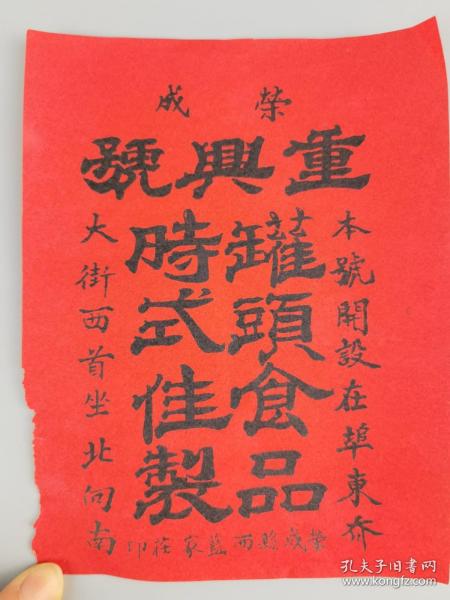 榮成
重興號
本號開設在埠東夼
罐頭食品
時式佳製
大街西首坐北向南
榮成縣西藍家莊印
孔夫子旧书网
www.kongfz.com